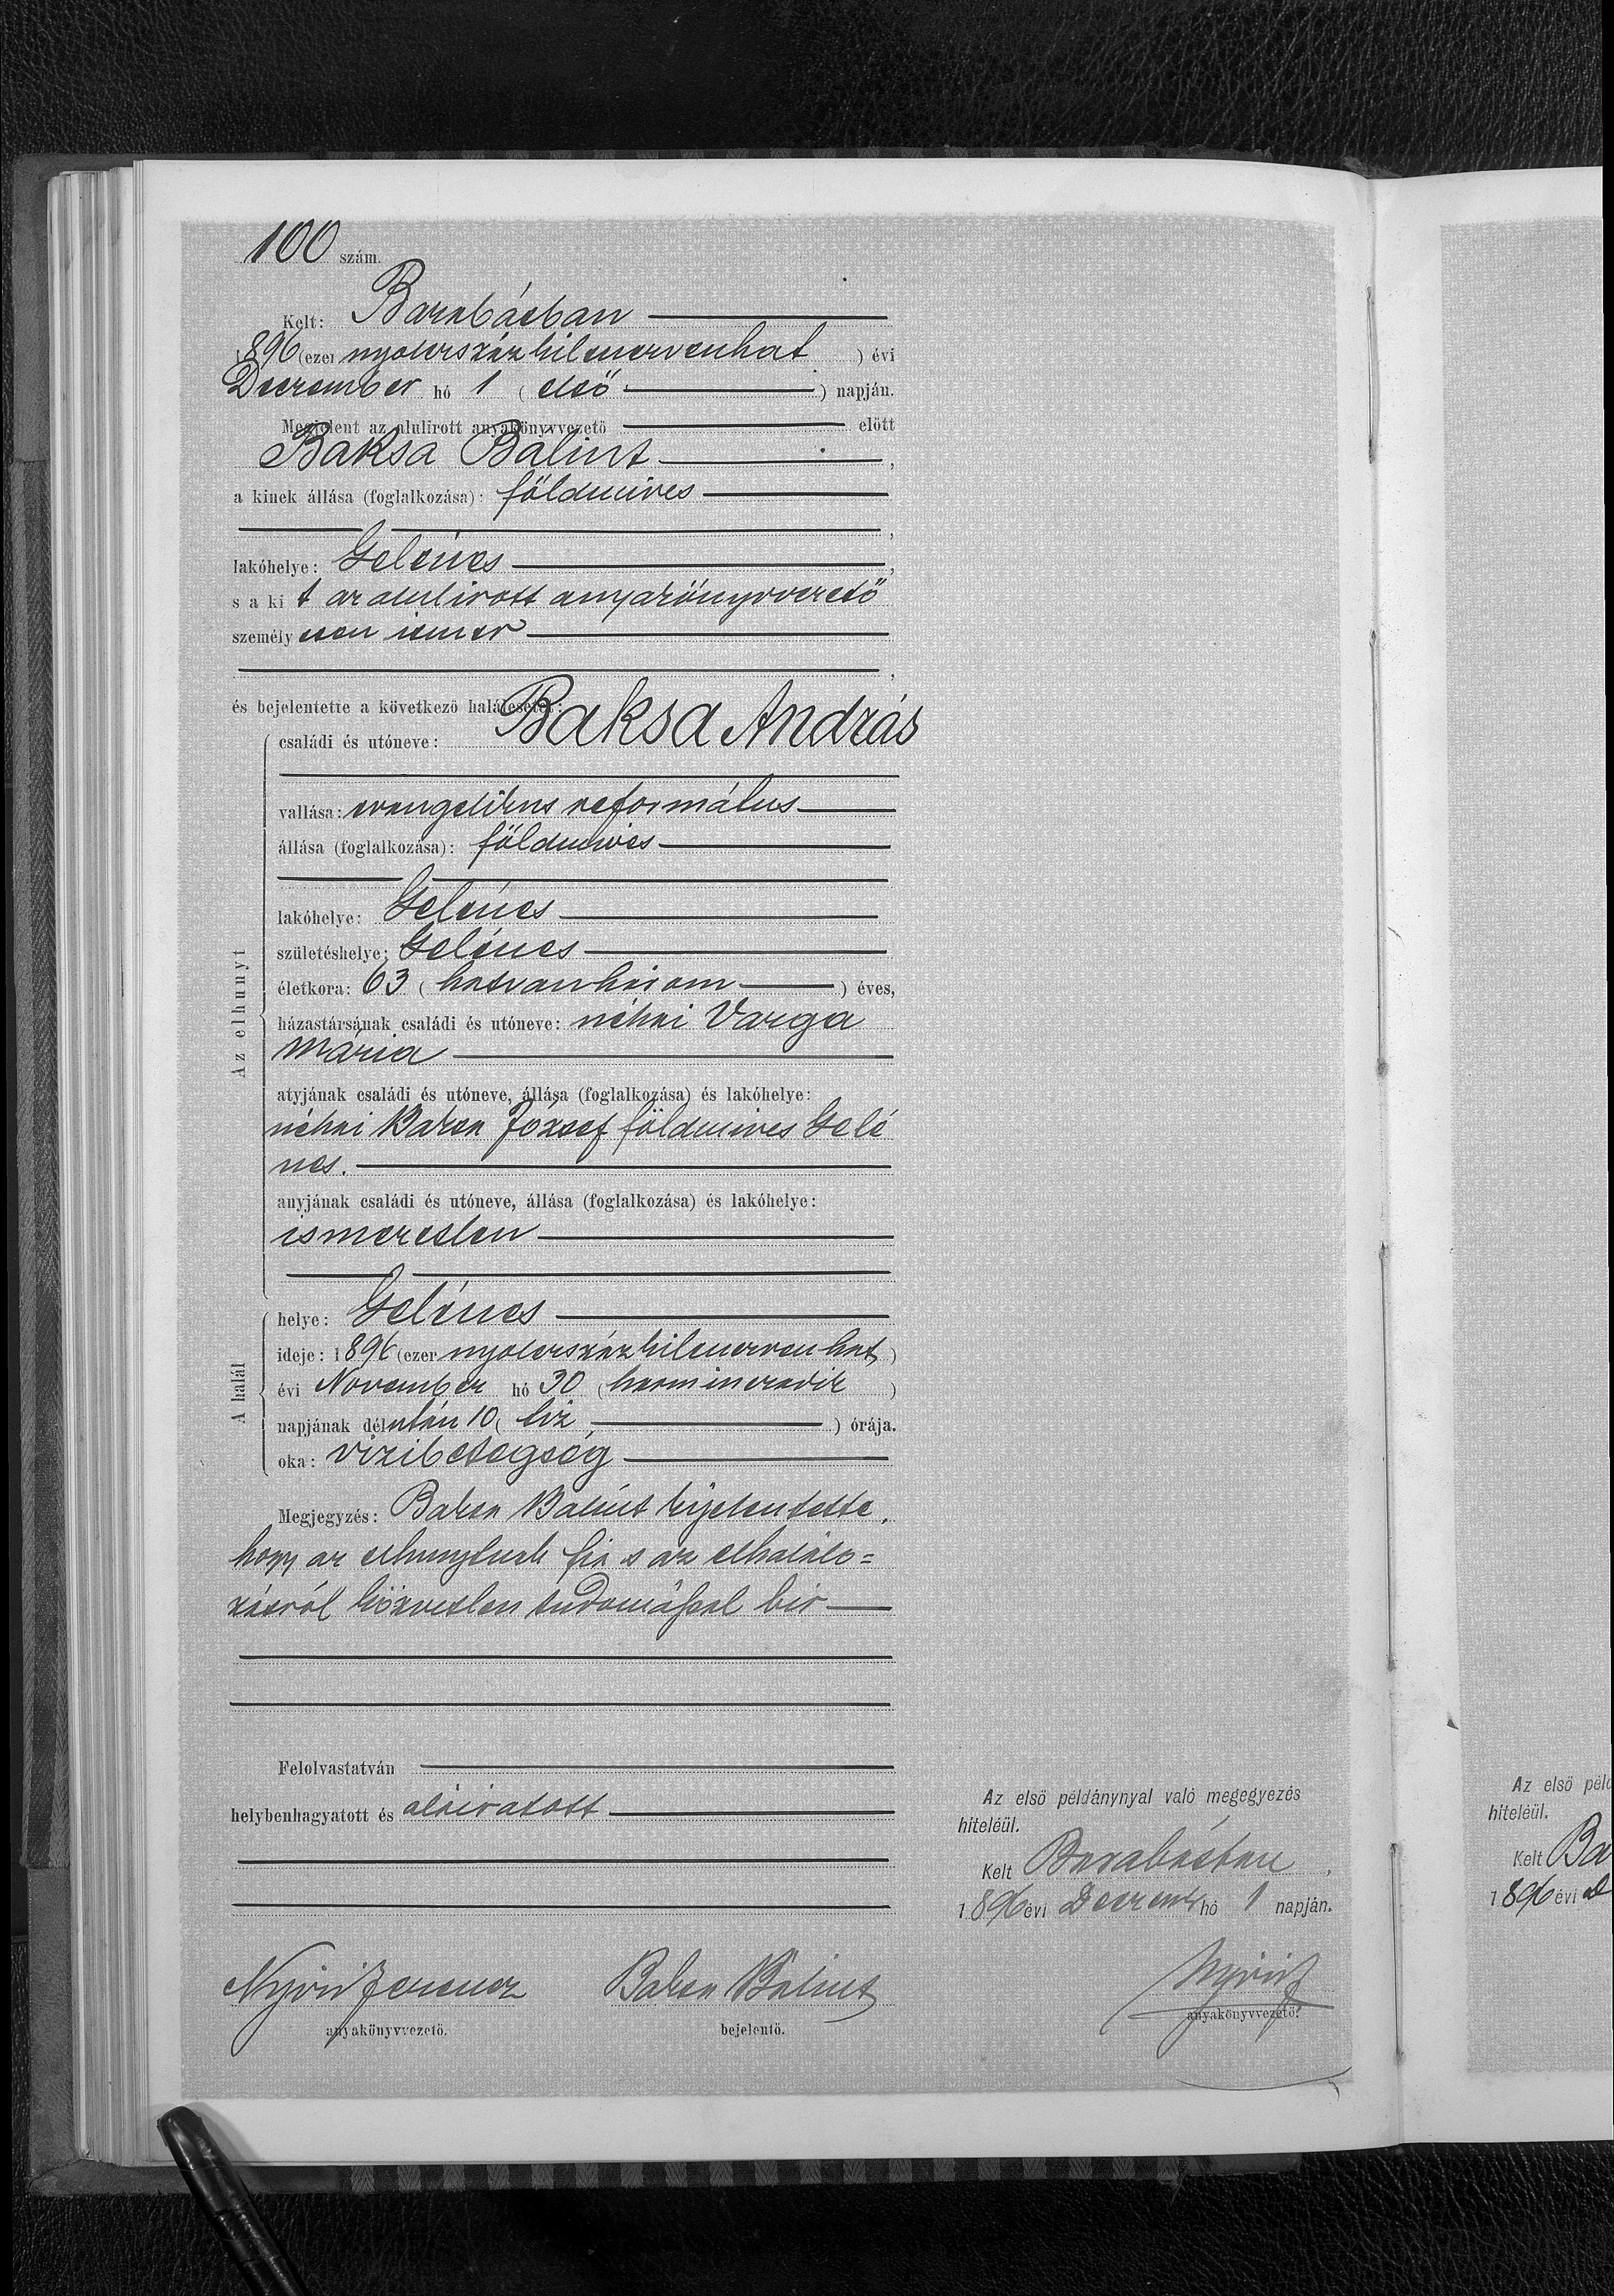 100 szám.
Kelt: Barabásban
1896 (ezer nyolcszázkilencvenhat) évi
December hó 1 (első) napján.
Megjelent az alulirott anyakönyvvezető előtt
Baksa Bálint,
a kinek állása (foglalkozása): földmives
,
lakóhelye: Gelénes,
s a kit az alulirott anyakönyvvezető
személyesen ismer
,
és bejelentette a következő halálesetet:
Az elhunyt
családi és utóneve: Baksa András
vallása: evangelikus református
állása (foglalkozása): földmives
lakóhelye: Gelénes
születéshelye: Gelénes
életkora: 63 (hatvanhárom) éves,
házastársának családi és utóneve: néhai Varga
Mária
atyjának családi és utóneve, állása (foglalkozása) és lakóhelye:
néhai Baksa József földmives Gelé
nes.
anyjának családi és utóneve, állása (foglalkozása) és lakóhelye:
ismeretlen
A halál
helye: Gelénes
ideje: 1896 (ezer nyolcszázkilencvenhat)
évi November hó 30 (harmincadik)
napjának délután 10 (tiz) órája.
oka: vizibetegség
Megjegyzés: Baksa Bálint kijelentette,
hogy az elhunytnak fia s az elhalálo=
zásról közvetlen tudomással bir
Felolvastatván
helybenhagyatott és aláiratott
Nyiri Ferencz
anyakönyvvezető.
Baksa Bálint
bejelentő.
Az első példánynyal való megegyezés
hiteléül.
Kelt Barabásban,
1896 évi Decemb hó 1 napján.
Nyiri F
anyakönyvvezető.
Az első péld
hiteléül.
Kelt Ba
1896 évi D